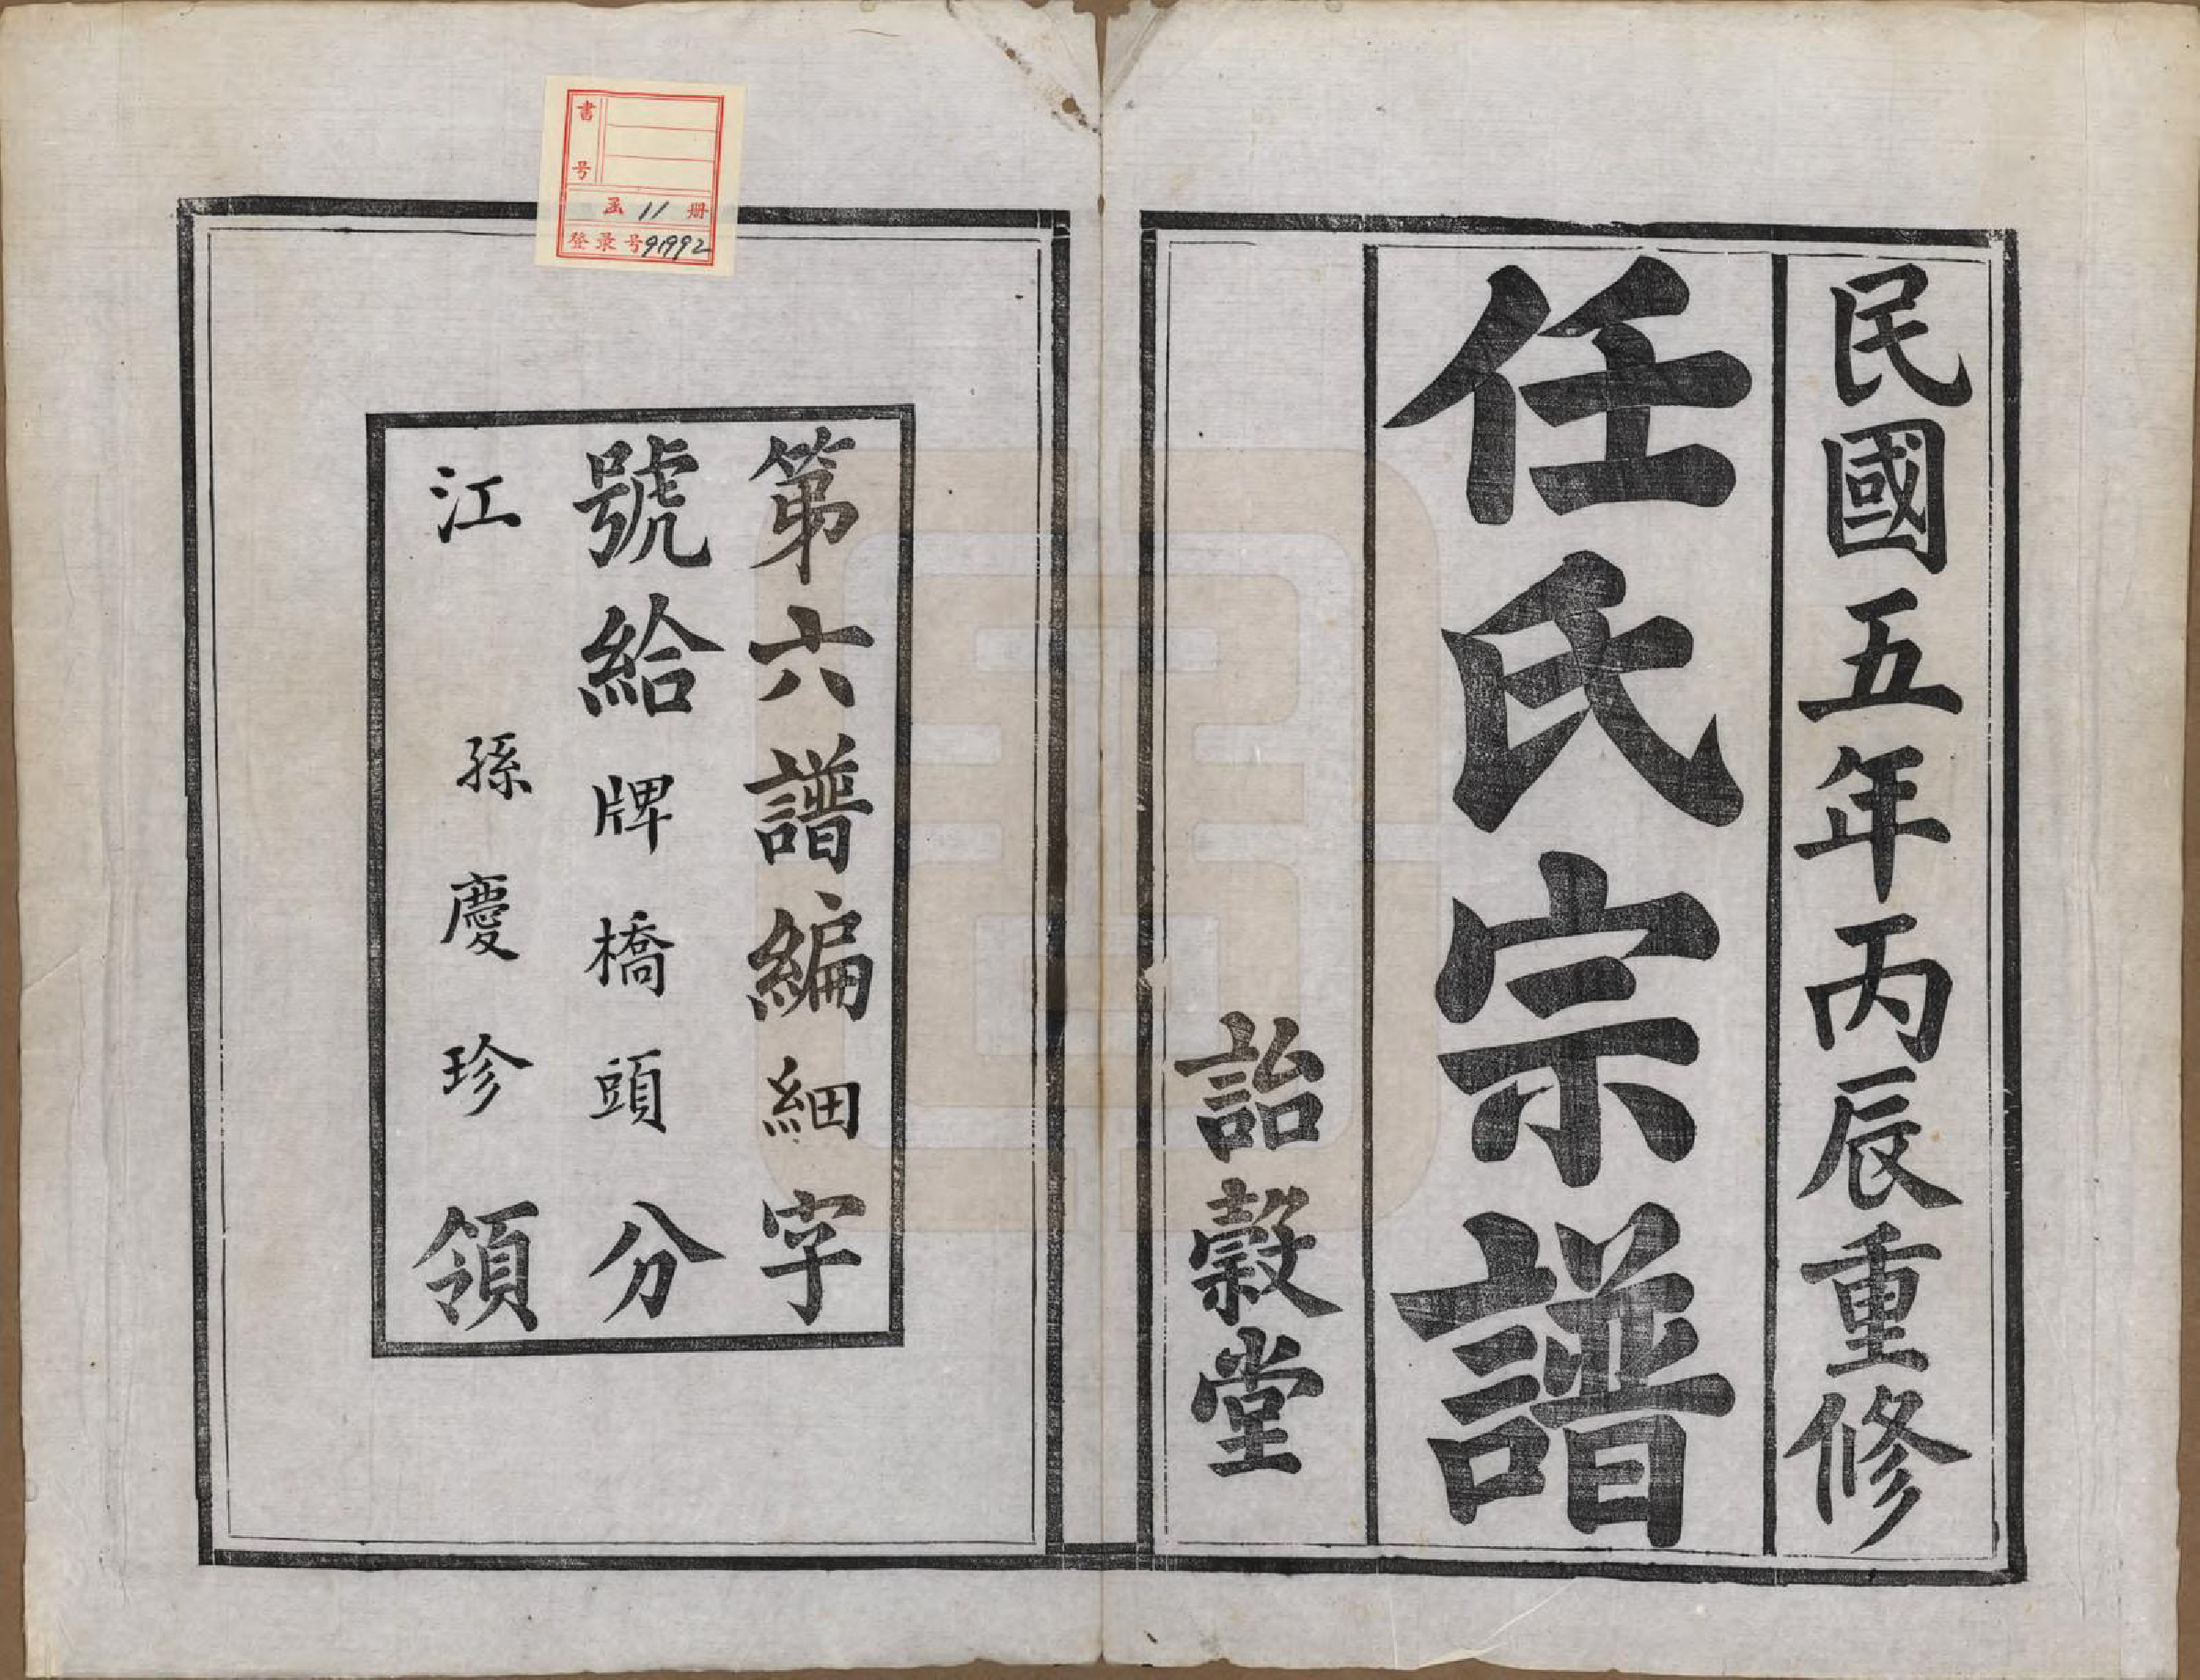 民國五年丙辰重修
任氏宗譜
詒穀堂
第六譜編細字
號給牌橋頭分
江孫慶珍領
書号
函 11 册
登录号 91992